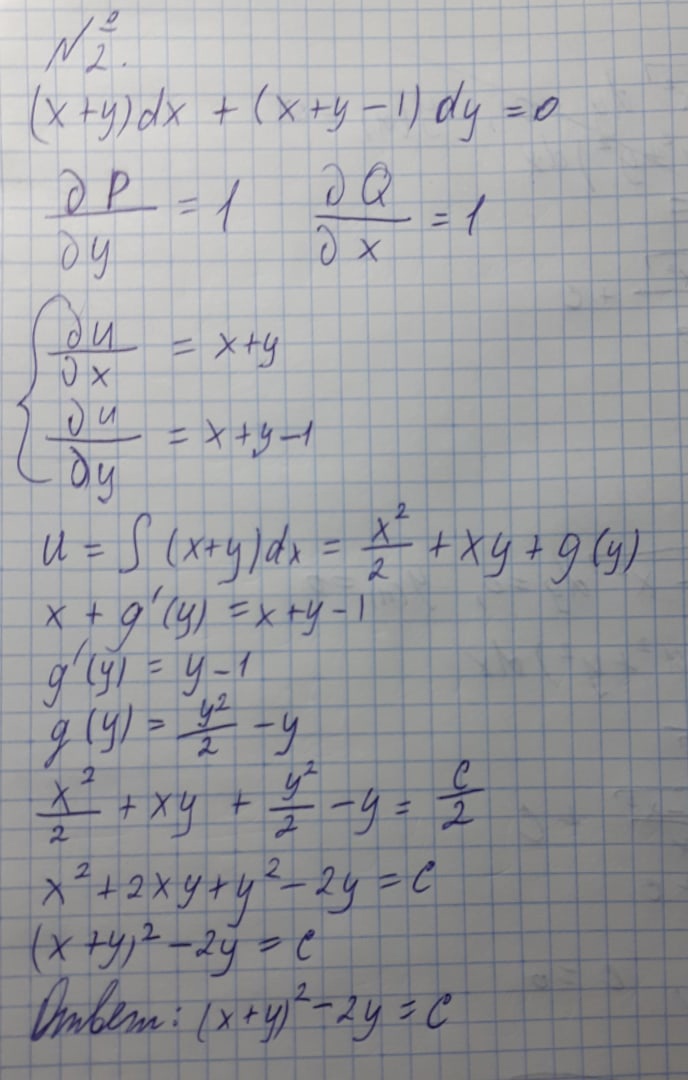 №2.
(x+y)dx + (x+y−1)dy = 0
∂P/∂y = 1 ∂Q/∂x = 1
{ ∂u/∂x = x+y
∂u/∂y = x+y−1
u = ∫(x+y)dx = x²/2 + xy + g(y)
x + g'(y) = x+y−1
g'(y) = y−1
g(y) = y²/2 − y
x²/2 + xy + y²/2 − y = c/2
x² + 2xy + y² − 2y = c
(x+y)² − 2y = c
Ответ: (x+y)² − 2y = c